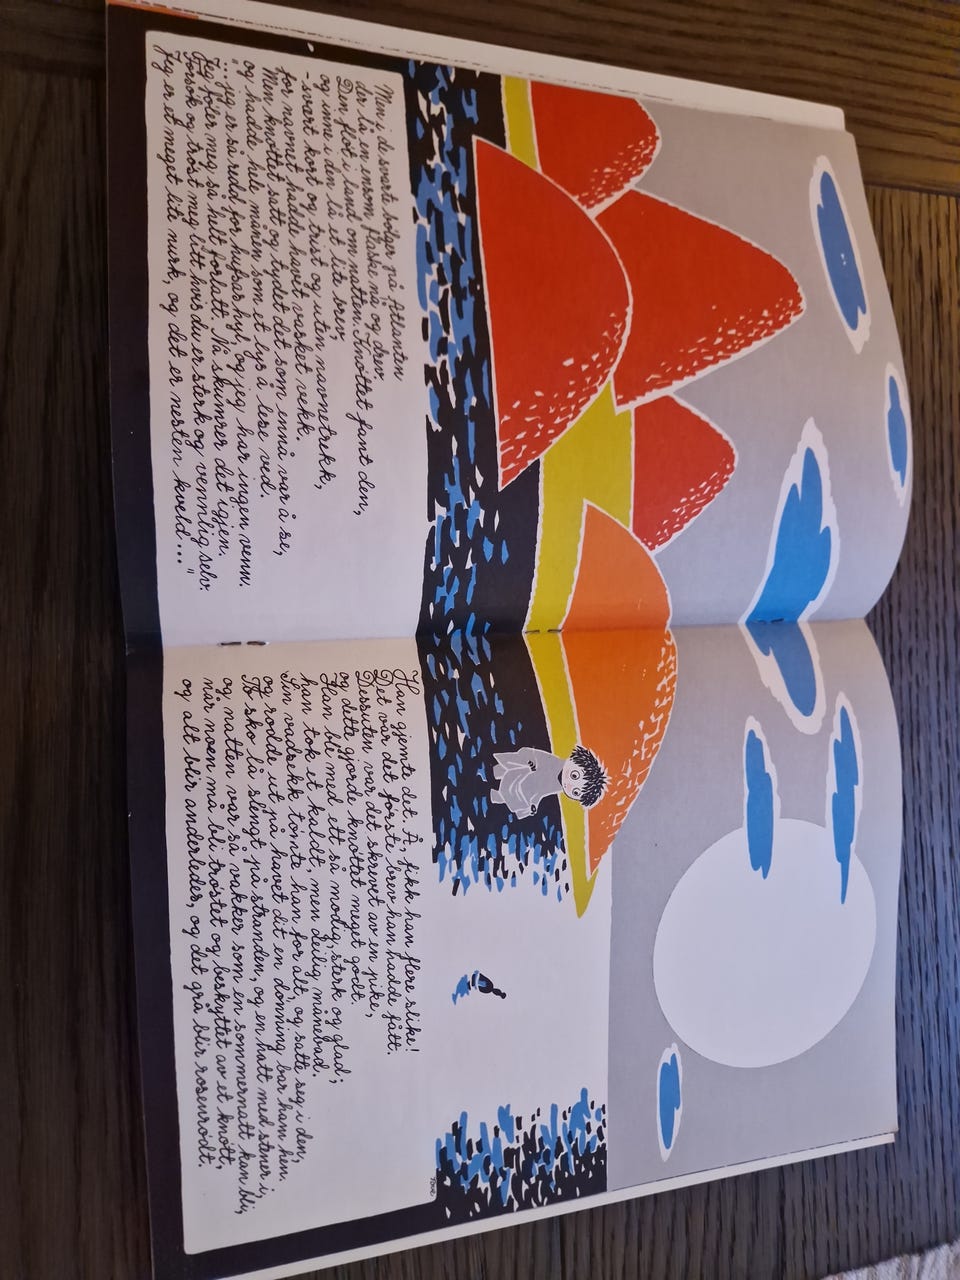 Men i de svarte bølger på Atlanten
der lå en ensom flaske nå og drev.
Den fløt i land om natten. Knøttet fant den,
og inne i den lå et lite brev,
-svært kort og trist og uten navnetrekk,
for navnet hadde havet vasket vekk.
Men knøttet satt og tydet det som ennå var å se,
og hadde hele månen som et lys å lese ved.
"...jeg er så redd for hufsarhyl, og jeg har ingen venn.
Jeg føler meg så helt forlatt. Nå skumrer det igjen.
Forsøk og trøst meg litt hvis du er sterk og vennlig selv.
Jeg er et meget lite nurk, og det er nesten kveld..."
Han gjemte det. Å, fikk han flere slike!
Det var det første brev han hadde fått.
Dessuten var det skrevet av en pike,
og dette gjorde knøttet meget godt.
Han ble med ett så modig, sterk og glad;
han tok et kaldt, men deilig, månebad.
Sin vadsekk tømte han for alt, og satte seg i den,
og rodde ut på havet dit en dønning bar ham hen.
To sko lå slengt på stranden, og en hatt med stener i,
og natten var så vakker som en sommernatt kan bli,
når noen må bli trøstet og beskyttet av et knøtt,
og alt blir anderledes, og det grå blir rosenrødt.
TOVE